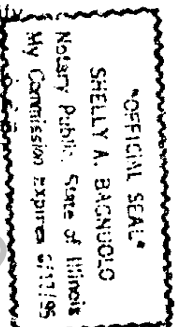 "OFFICIAL SEAL"
SHELLY A. BAGNUOLO
Notary Public, State of Illinois
My Commission Expires